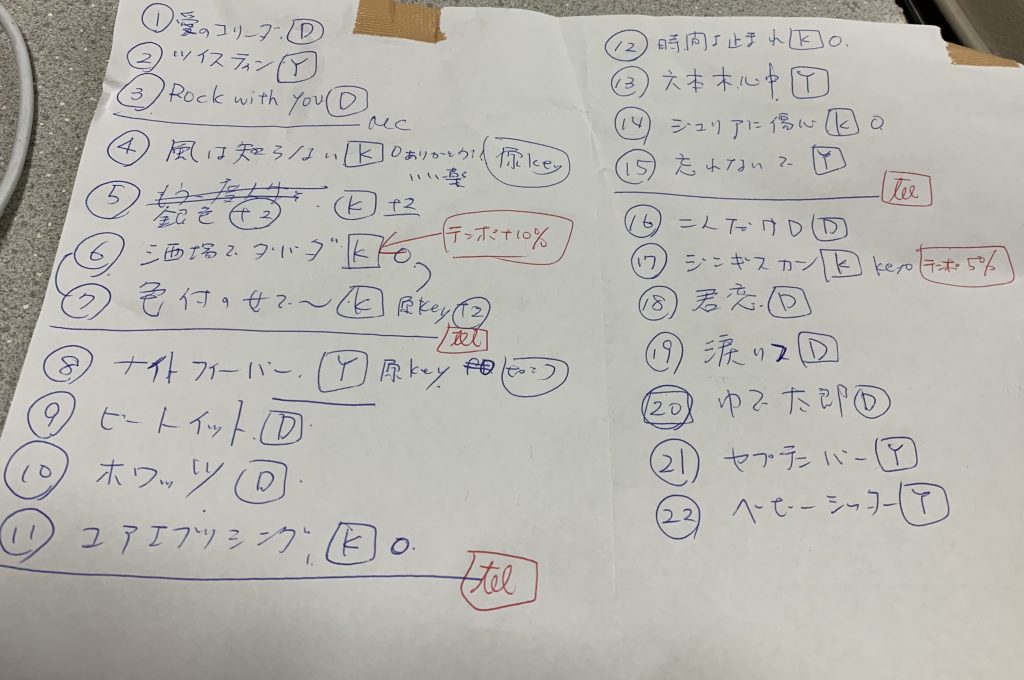 ① 愛のコリーダ. D
② ツイスティン Y
③ Rock with You D
MC
④ 風は知らない K 0 ありがとう! 原key
いい薬
⑤ K +2
銀色 +2
⑥ 酒場でダバダ K 0 テンポ+10%
⑦ 色付の女で〜 K 原key +2
tel
⑧ ナイトフィーバー. Y 原key.
⑨ ビートイット. D
⑩ ホワッツ D
⑪ ユアエブリシング. K 0.
tel
⑫ 時間よ止まれ K 0.
⑬ 六本木心中 Y
⑭ ジュリアに傷心 K 0
⑮ 忘れないで Y
tel
⑯ こんだけD D
⑰ ジンギスカン K key0 テンポ5%
⑱ 君恋. D
⑲ 涙リク D
⑳ ゆで太郎 D
㉑ セプテンバー Y
㉒ ベービーシッター Y